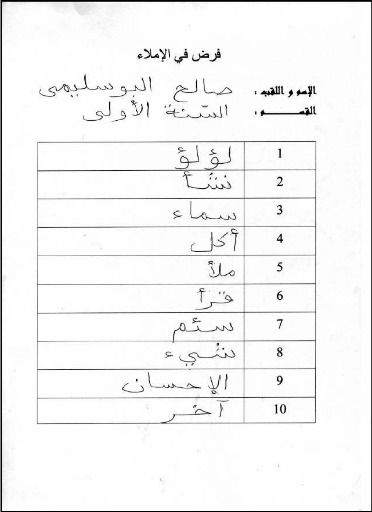 فرض في الإملاء
الإسم و اللقب : صالح البوسليمي
القسم : السّنة الأولى
1 لؤلؤ
2 نشأ
3 سماء
4 أكل
5 ملأ
6 قرأ
7 سئم
8 شيء
9 الإحسان
10 آخر